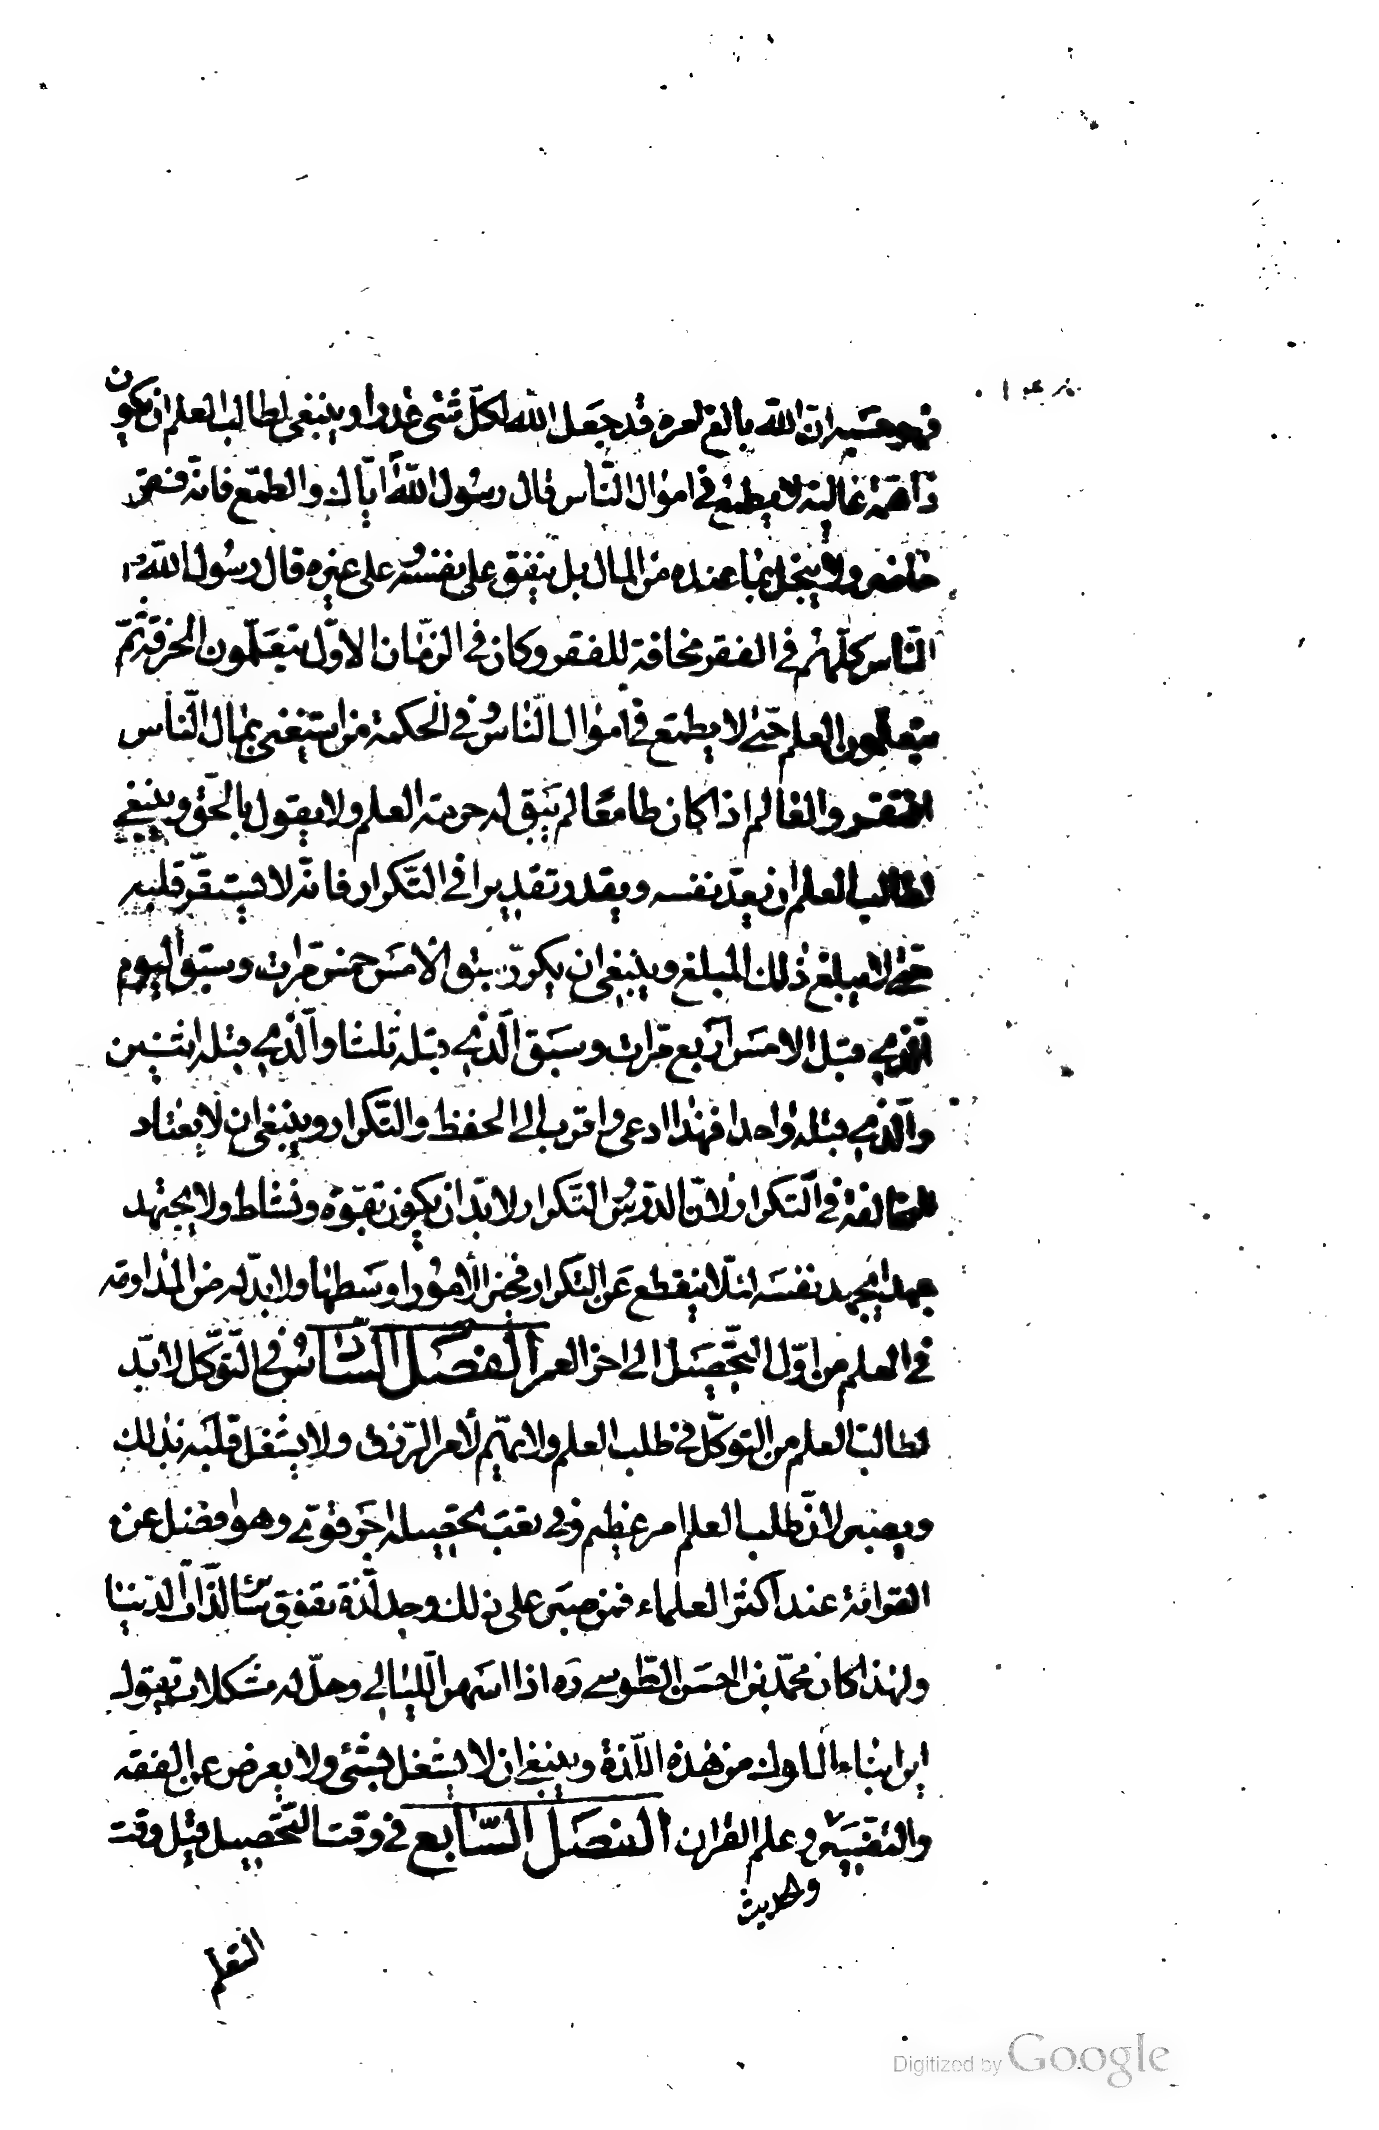 فهو حسبه ان الله بالغ امره قد جعل الله لكل شئ قدرا وينبغى لطالب العلم ان يكون
ذا همة عالية لا يطمع فى اموال الناس قال رسول الله اياك والطمع فانه فقر
حاضر ولا يبخل بما عنده من المال بل ينفق على نفسه و على غيره قال رسول الله
الناس كلهم فى الفقر مخافة للفقر وكان فى الزمان الاول يتعلمون الحرفة ثم
يتعلمون العلم حتى لا يطمع فى اموال الناس و فى الحكمة من استغنى بمال الناس
افتقر والعالم اذا كان طامعا لم يبق له حرمة العلم ولا يقول بالحق وينبغى
لطالب العلم ان يعد نفسه ويقدر تقديرا فى التكرار فانه لا يستقر قلبه
حتى لا يبلغ ذلك المبلغ وينبغى ان يكرر سبق الامس خمس مرات وسبق اليوم
الذى قبل الامس اربع مرات وسبق الذى قبله ثلثا والذى قبله اثنين
والذى قبله واحدا فهذا ادعى واقرب الى الحفظ والتكرار وينبغى ان لا يعتاد
المخافة فى التكرار لان الدرس و التكرار لا بد ان يكون بقوة ونشاط ولا يجتهد
جهدا يجهد نفسه لئلا ينقطع عن التكرار فخير الامور اوسطها ولا بد له من المداومة
فى العلم من اول التحصيل الى اخر العمر الفصل السادس فى التوكل لا بد
لطالب العلم من التوكل فى طلب العلم ولا يهتم لأمر الرزق ولا يشغل قلبه بذلك
ويصبر لان طلب العلم امر عظيم وفى تعب تحصيله اجر قوى وهو افضل من
القراءة عند اكثر العلماء فمن صبر على ذلك وجد لذة تفوق سائر لذات الدنيا
ولهذا كان محمد بن الحسن الطوسى ره اذا اسهر الليالى وحل له مشكلات يقول
اين ابناء الملوك من هذه اللذة وينبغى ان لا يشغل بشئ ولا يعرض عن الفقه
والتفسير و علم القران الفصل السابع فى وقت التحصيل قيل وقت
والحديث
التعلم
Digitized by Google